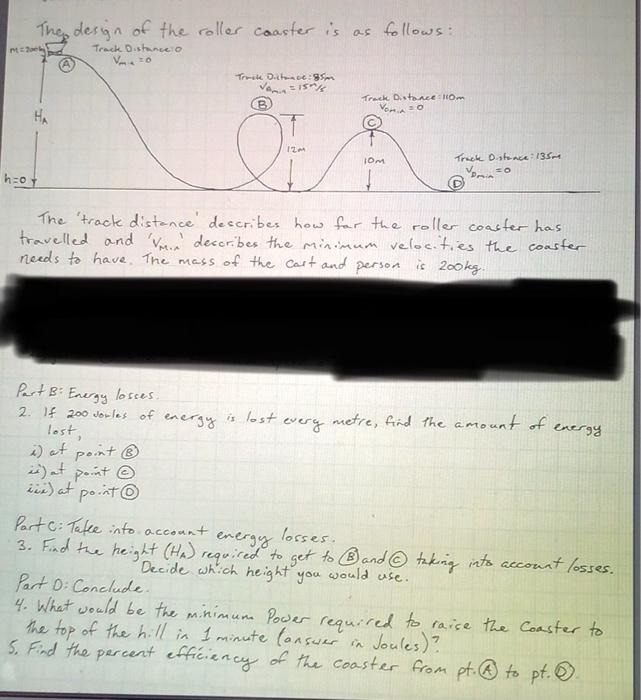 The design of the roller coaster is as follows:
m=200kg
Track Distance: 0
Vmin = 0
A
HA
h=0
Track Distance: 85m
VBmin = 15m/s
B
12m
Track Distance: 110m
VCmin = 0
C
10m
Track Distance: 135m
VDmin = 0
D
The 'track distance' describes how far the roller coaster has
travelled and 'Vmin' describes the minimum velocities the coaster
needs to have. The mass of the cart and person is 200kg.
Part B: Energy losses.
2. If 200 Joules of energy is lost every metre, find the amount of energy
lost,
i) at point B
ii) at point C
iii) at point D
Part C: Take into account energy losses.
3. Find the height (HA) required to get to B and C taking into account losses.
Decide which height you would use.
Part D: Conclude.
4. What would be the minimum Power required to raise the Coaster to
the top of the hill in 1 minute (answer in Joules)?
5. Find the percent efficiency of the coaster from pt. A to pt. D.